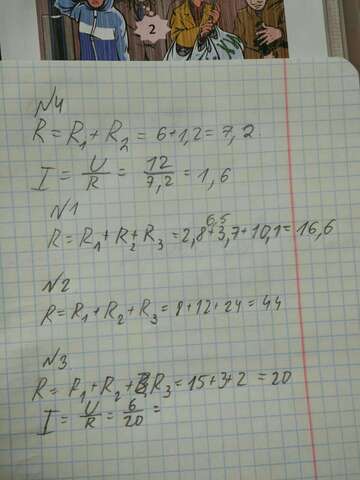 2
№4
R = R₁ + R₂ = 6+1,2 = 7,2
I = U/R = 12/7,2 = 1,6
№1
6,5
R = R₁ + R₂ + R₃ = 2,8+3,7+10,1 = 16,6
№2
R = R₁ + R₂ + R₃ = 8+12+24 = 44
№3
R = R₁ + R₂ + R₃ = 15+3+2 = 20
I = U/R = 6/20 =